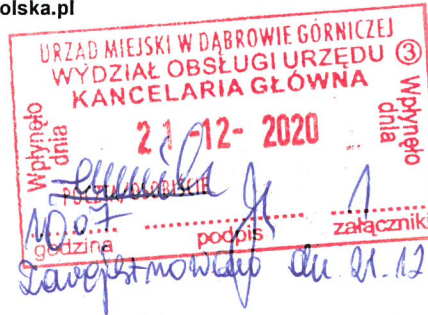 olska.pl
URZĄD MIEJSKI W DĄBROWIE GÓRNICZEJ
WYDZIAŁ OBSŁUGI URZĘDU ③
KANCELARIA GŁÓWNA
Wpłynęło dnia
21 -12- 2020
Wpłynęło dnia
POCZTA/OSOBIŚCIE
1007 1
godzina podpis załączniki
Zarejestrowano dn. 21.12